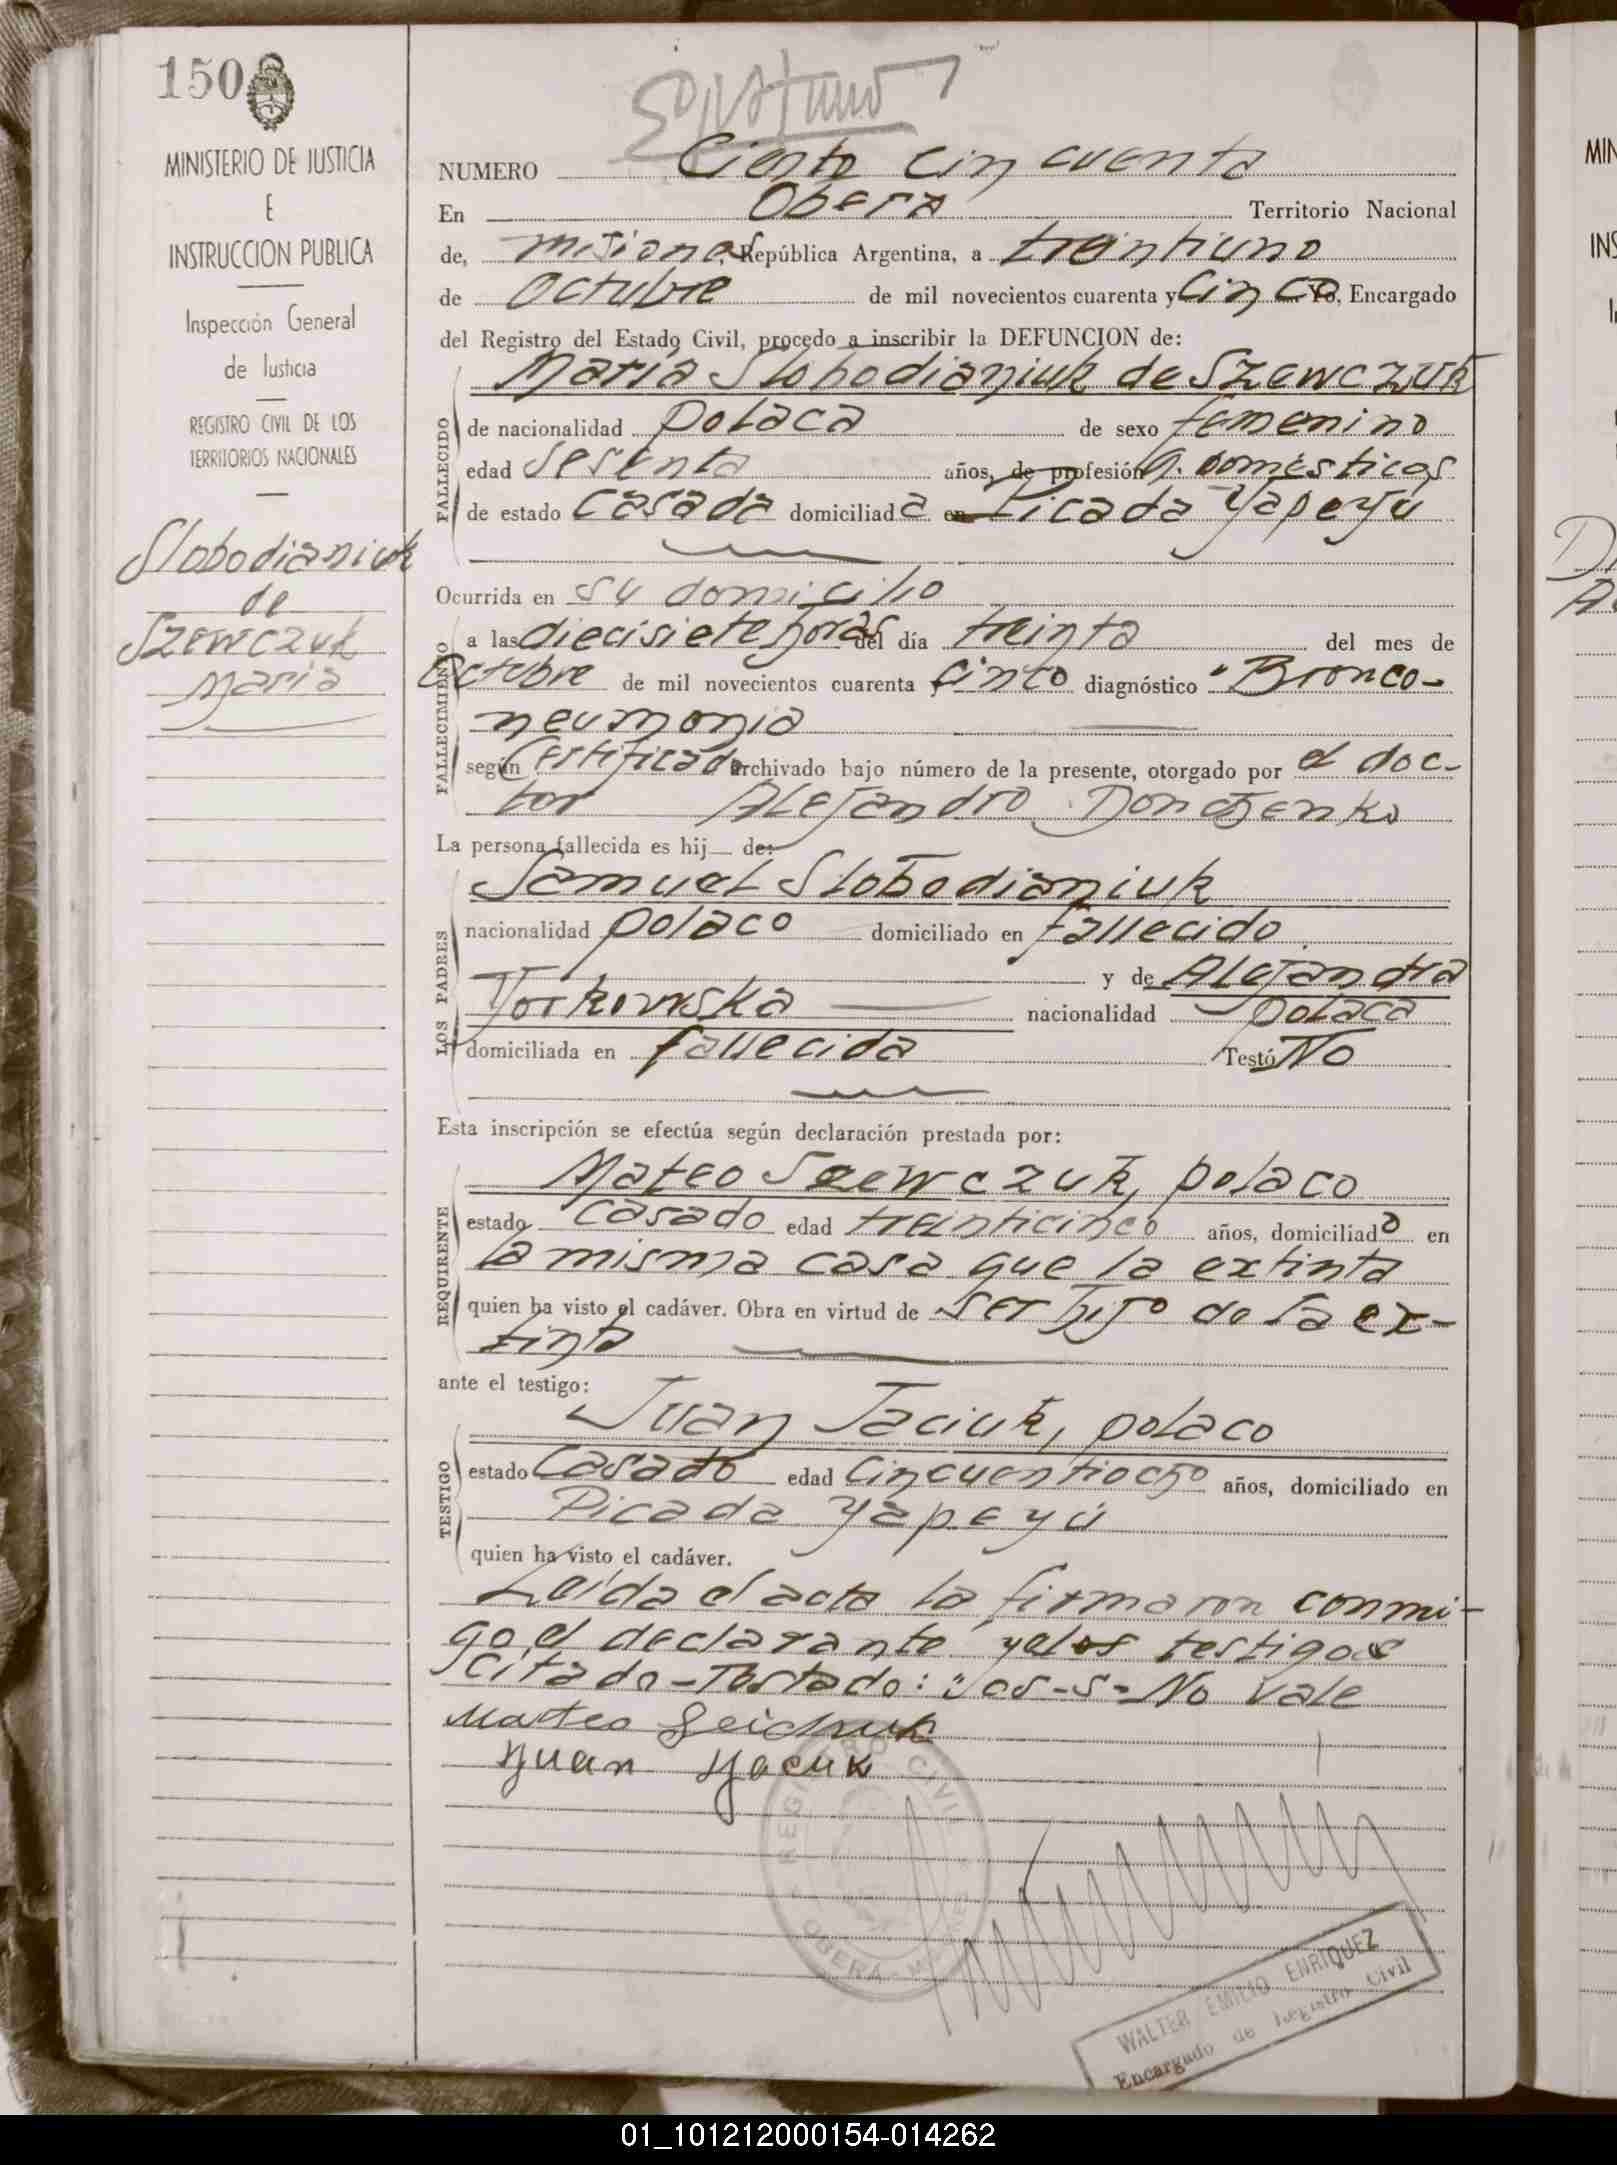 150
MINISTERIO DE JUSTICIA
E
INSTRUCCION PUBLICA
Inspección General
de Justicia
REGISTRO CIVIL DE LOS
TERRITORIOS NACIONALES
Slobodianiuk
de
Szewczuk
Maria
NUMERO Ciento cincuenta
En Obera Territorio Nacional
de, misiones República Argentina, a treintiuno
de Octubre de mil novecientos cuarenta y cinco Yo, Encargado
del Registro del Estado Civil, procedo a inscribir la DEFUNCION de:
Maria Slobodianiuk de Szewczuk
FALLECIDO
de nacionalidad polaca de sexo femenino
edad sesenta años, de profesión q. domésticos
de estado casada domiciliada en Picada Yapeyú
Ocurrida en su domicilio
FALLECIMIENTO
a las diecisiete horas del día treinta del mes de
Octubre de mil novecientos cuarenta y cinco diagnóstico "Bronco-
neumonia
según Certificado archivado bajo número de la presente, otorgado por el doc-
tor Alejandro
La persona fallecida es hij de:
LOS PADRES
Samuel Slobodianiuk
nacionalidad polaco domiciliado en fallecido
y de Alejandra
nacionalidad polaca
domiciliada en fallecida Testó No
Esta inscripción se efectúa según declaración prestada por:
REQUIRENTE
Mateo Szewczuk, polaco
estado casado edad treinticinco años, domiciliado en
la misma casa que la extinta
quien ha visto el cadáver. Obra en virtud de ser hijo de la ex-
tinta
ante el testigo:
TESTIGO
Juan Jaciuk, polaco
estado casado edad cincuentiocho años, domiciliado en
Picada Yapeyú
quien ha visto el cadáver.
Leida el acta la firmaron conmi-
go el declarante y el os testigos
citado-Testado: "os-s-No vale
Mateo
Juan
REGISTRO CIVIL
OBERA
WALTER EMILIO ENRIQUEZ
Encargado de Registro Civil
MIN
INS
01_101212000154-014262